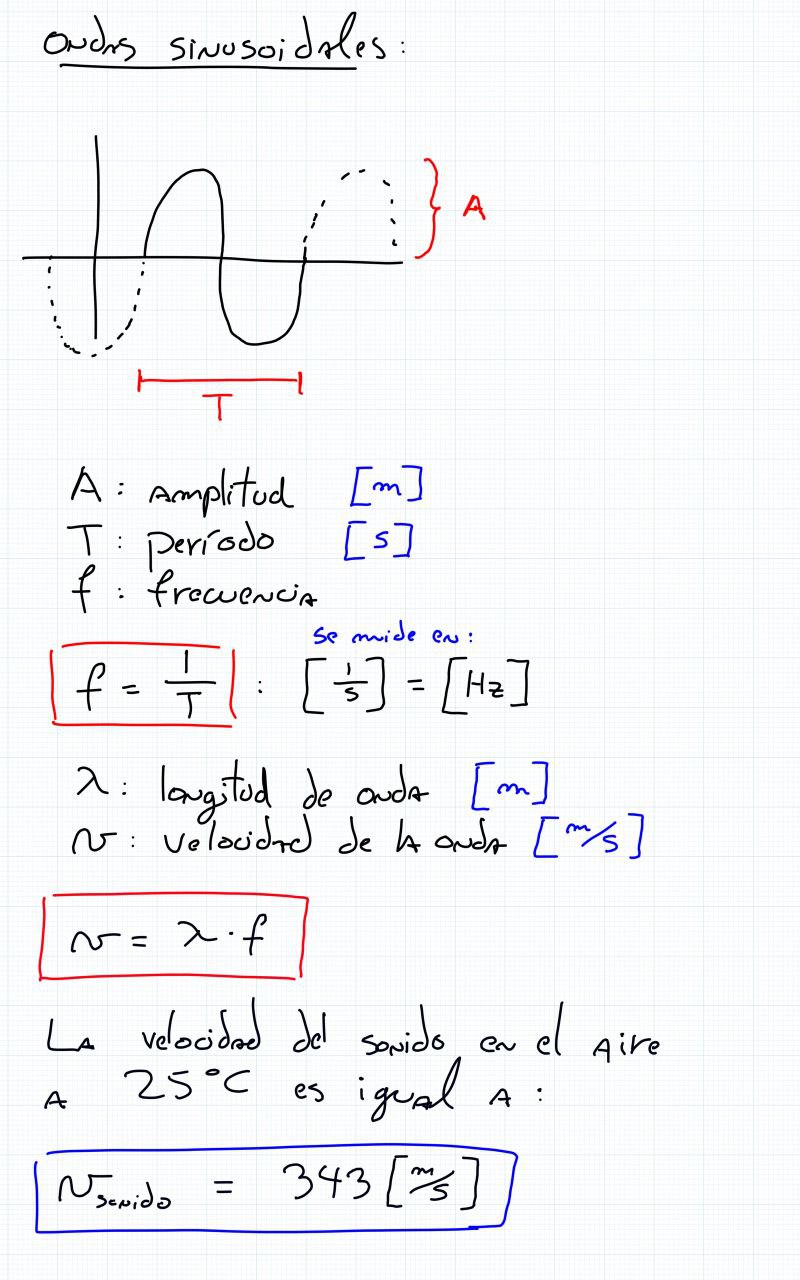 Ondas sinusoidales:
A
T
A: Amplitud [m]
T: período [s]
f: frecuencia
se mide en:
f = 1/T : [1/s] = [Hz]
λ: longitud de onda [m]
v: velocidad de la onda [m/s]
v = λ · f
La velocidad del sonido en el aire
a 25°C es igual a:
v sonido = 343 [m/s]